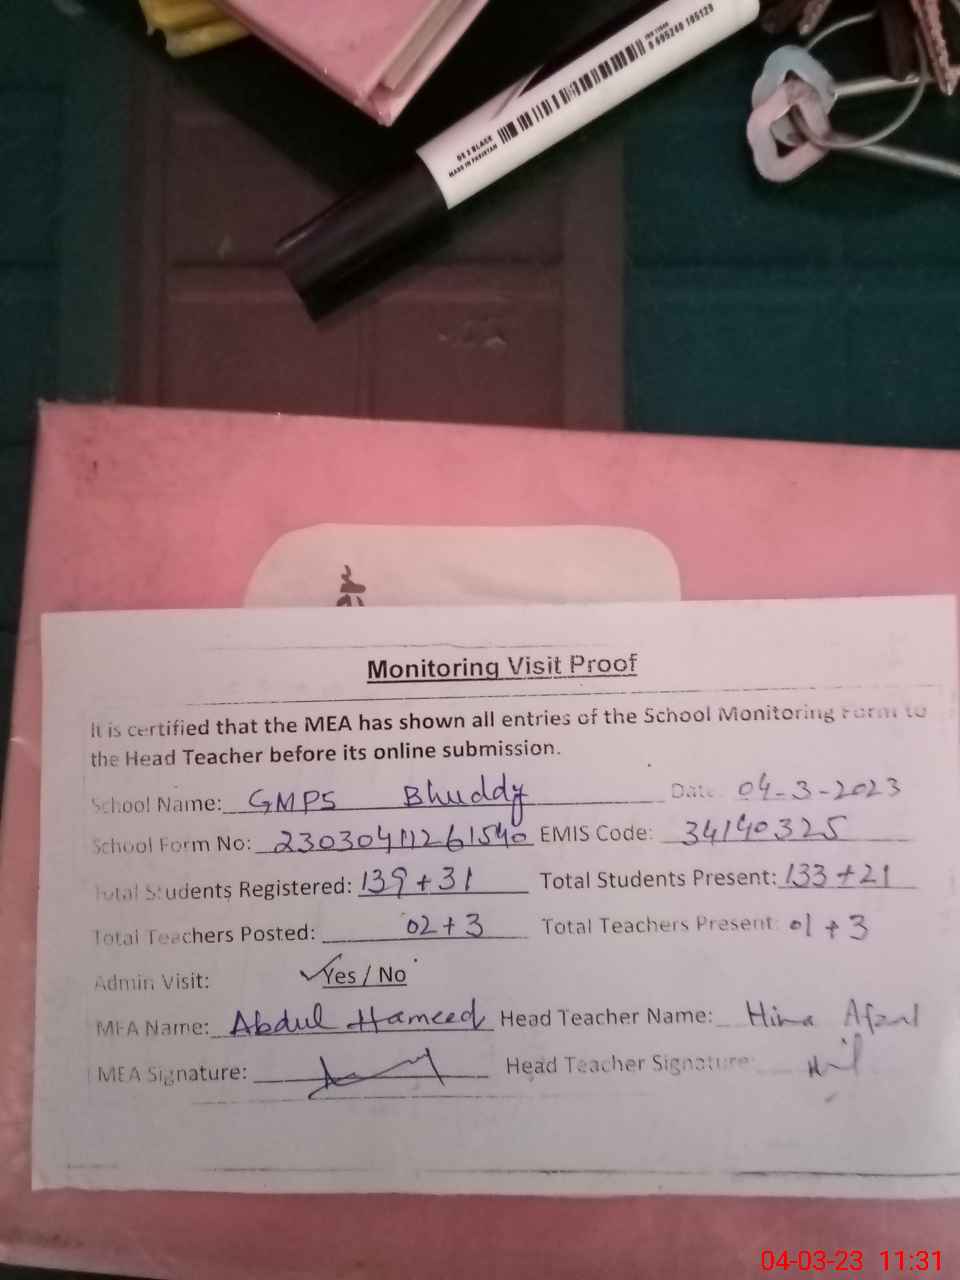 DS 2 BLACK
MADE IN PAKISTAN
8 695240 105129
Monitoring Visit Proof
It is certified that the MEA has shown all entries of the School Monitoring Form to
the Head Teacher before its online submission.
School Name: GMPS Bhuddy Date: 04-3-2023
School Form No: 230304111261540 EMIS Code: 34140325
Total Students Registered: 139+31 Total Students Present: 133+21
Total Teachers Posted: 02+3 Total Teachers Present: 01+3
Admin Visit: ✓Yes / No
MEA Name: Abdul Hameed Head Teacher Name: Hina Afzal
MEA Signature: Head Teacher Signature:
04-03-23 11:31